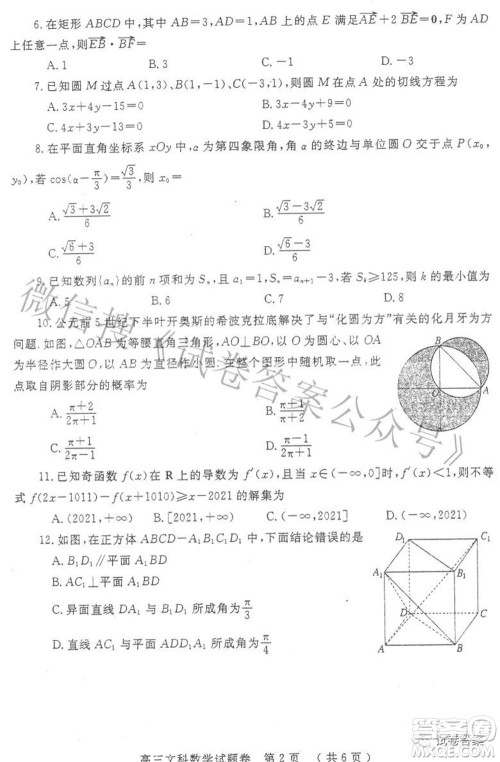 6.在矩形 ABCD 中,其中 AB=3,AD=1,AB 上的点 E 满足AE+2 BE=0,F 为 AD
上任意一点,则EB·BF=
A.1 B.3 C.-1 D.-3
7.已知圆 M 过点 A(1,3)、B(1,-1)、C(-3,1),则圆 M 在点 A 处的切线方程为
A.3x+4y-15=0 B.3x-4y+9=0
C.4x+3y-13=0 D.4x-3y+5=0
8.在平面直角坐标系 xOy 中,α 为第四象限角,角 α 的终边与单位圆 O 交于点 P(x₀,
y₀),若 cos(α-π/3)=√3/3,则 x₀=
A.(√3+3√2)/6 B.(√3-3√2)/6
C.(√6+3)/6 D.(√6-3)/6
9.已知数列{aₙ}的前 n 项和为 Sₙ,且 a₁=1,Sₙ=aₙ₊₁-3,若 Sₖ≥125,则 k 的最小值为
A.5 B.6 C.7 D.8
10.公元前 5 世纪下半叶开奥斯的希波克拉底解决了与“化圆为方”有关的化月牙为方
问题.如图,△OAB 为等腰直角三角形,以 O 为圆心、以 OA
为半径作大圆 O,以 AB 为直径作小圆.在整个图形中随机取一点,此
点取自阴影部分的概率为
A.(π+2)/(2π+1) B.(π+1)/(π+2)
C.(π-1)/(2π+1) D.(π+1)/(2π-1)
B
O
A
11.已知奇函数 f(x)在 R 上的导数为 f′(x),且当 x∈(-∞,0]时,f′(x)<1,则不等
式 f(2x-1011)-f(x+1010)≥x-2021 的解集为
A.(2021,+∞) B.[2021,+∞) C.(-∞,2021] D.(-∞,2021)
12.如图,在正方体 ABCD-A₁B₁C₁D₁ 中,下面结论错误的是
A.B₁D₁∥平面 A₁BD
B.AC₁⊥平面 A₁BD
C.异面直线 DA₁ 与 B₁D₁ 所成角为π/3
D.直线 AC₁ 与平面 ADD₁A₁ 所成角为π/4
D₁
C₁
A₁
B₁
D
C
A
B
高三文科数学试题卷 第2页 (共6页)
微信搜《试卷答案公众号》
试卷答案